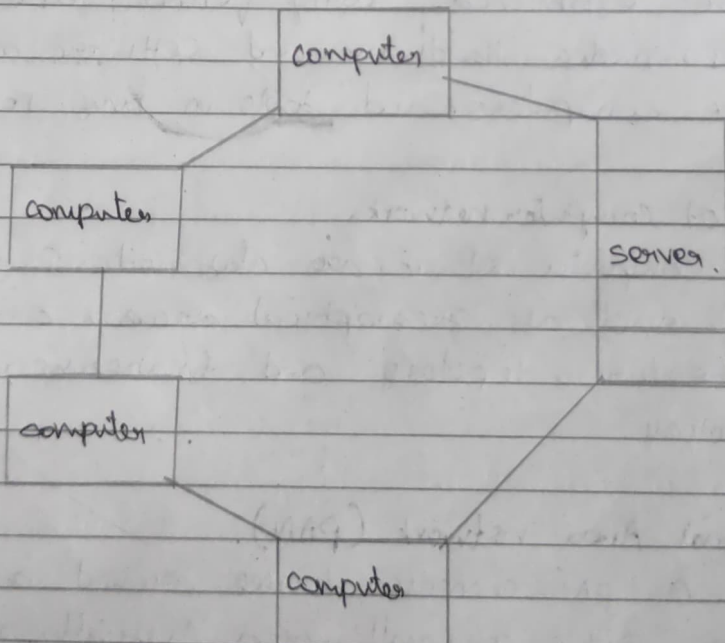 computer
computer
server.
computer
computer